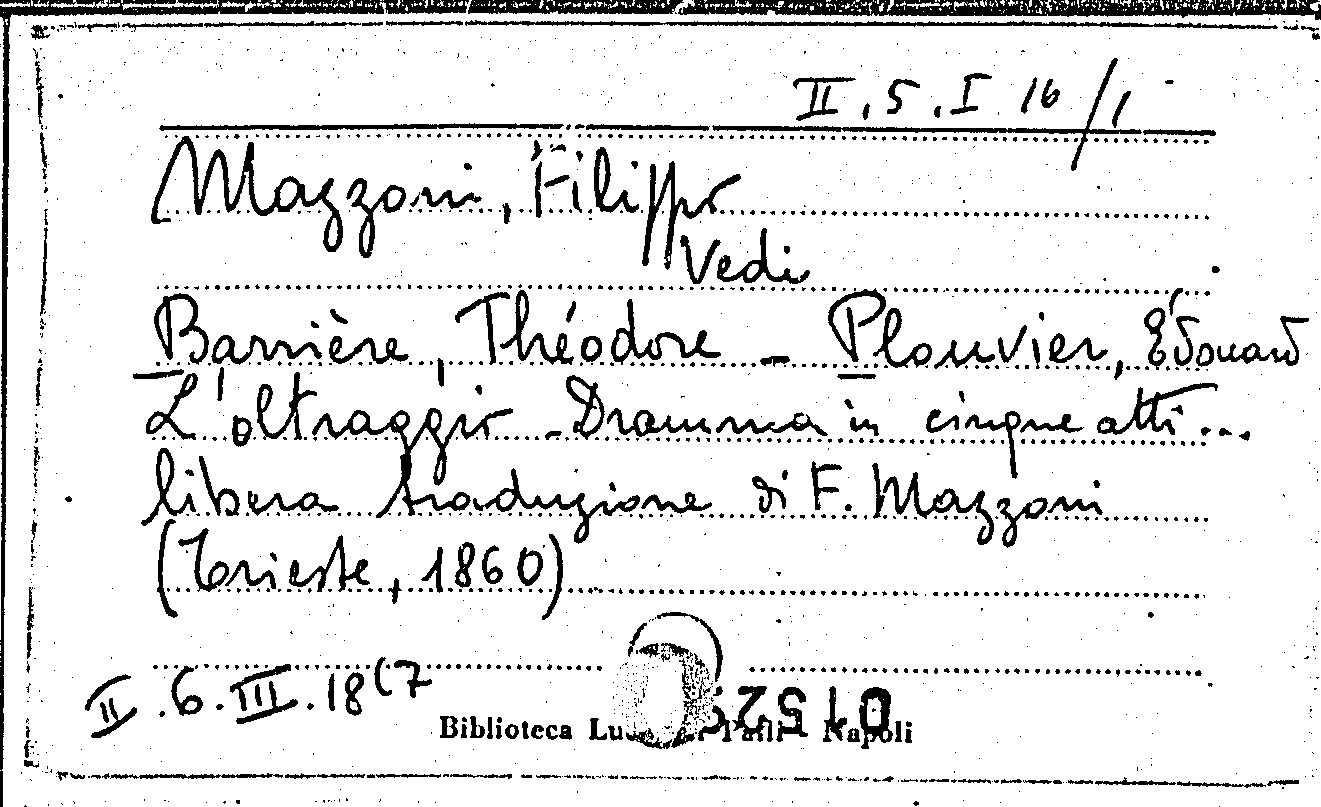 II.5.I 16/1
Mazzoni, Filippo
Vedi
Barrière, Théodore - Plouvier, Édouard
L'oltraggio - Dramma in cinque atti...
libera traduzione di F. Mazzoni
(Trieste, 1860)
II.6.III.18(7
Biblioteca Napoli